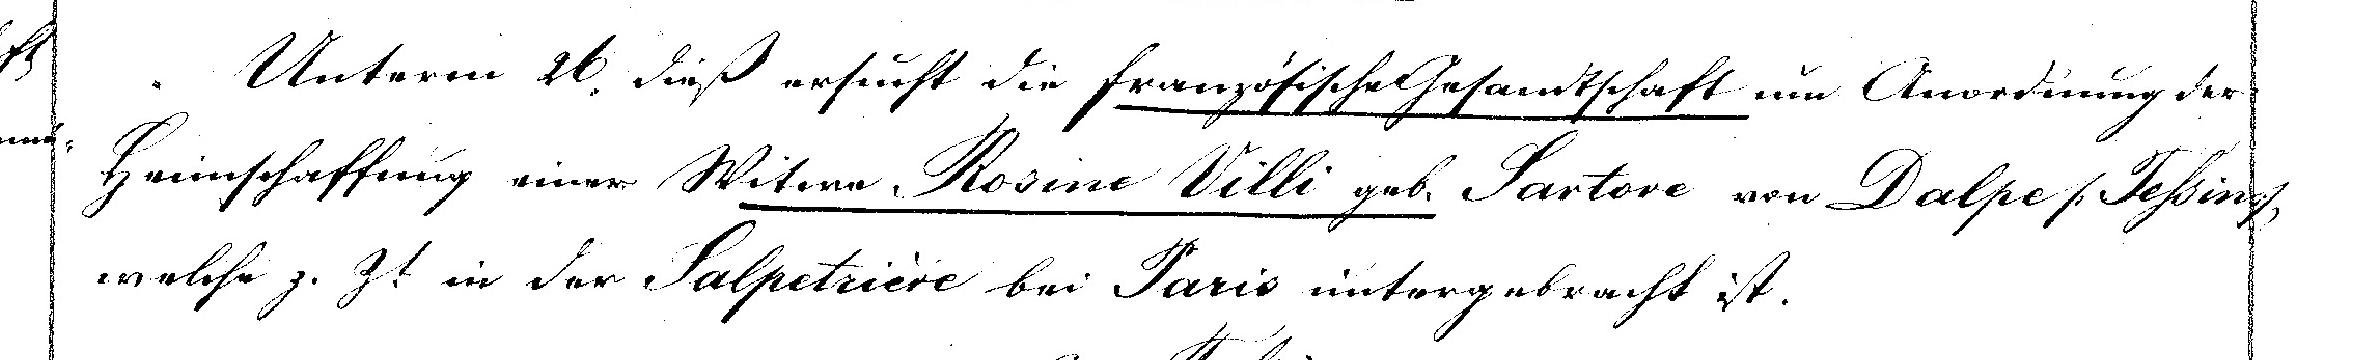 Unterm 26. dieß ersucht die französische Gesandtschaft um Anordnung der
Heimschaffung einer Witwe Rosine Villi geb. Sartore von Dalpe /: Tessin :/,
welche z. Zt in der Salpetrière bei Paris untergebracht ist.